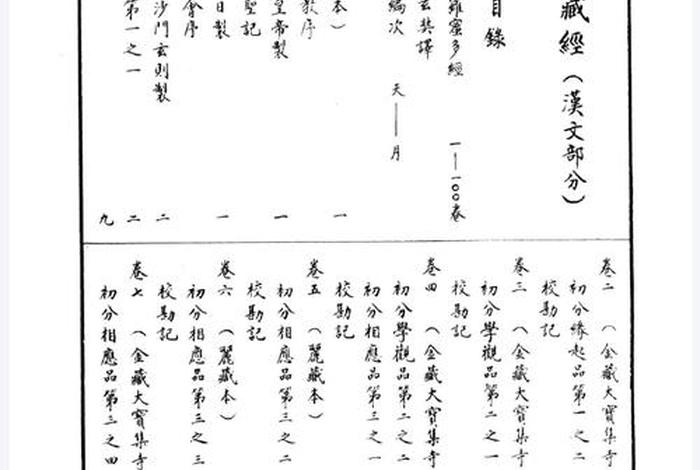 藏經（漢文部分）
目錄
羅蜜多經 一—一〇〇卷
玄奘譯
編次 天—月
本） 一
教序
皇帝製 一
聖記
日製 一
會序
沙門玄則製 二
第一之一 二
九
卷二 （金藏大寶集寺
初分緣起品第一之二
校勘記
卷三 （金藏大寶集寺
初分學觀品第二之一
校勘記
卷四 （金藏大寶集寺
初分學觀品第二之二
初分相應品第三之一
校勘記
卷五 （麗藏本）
初分相應品第三之二
校勘記
卷六 （麗藏本）
初分相應品第三之三
校勘記
卷七 （金藏大寶集寺
初分相應品第三之四